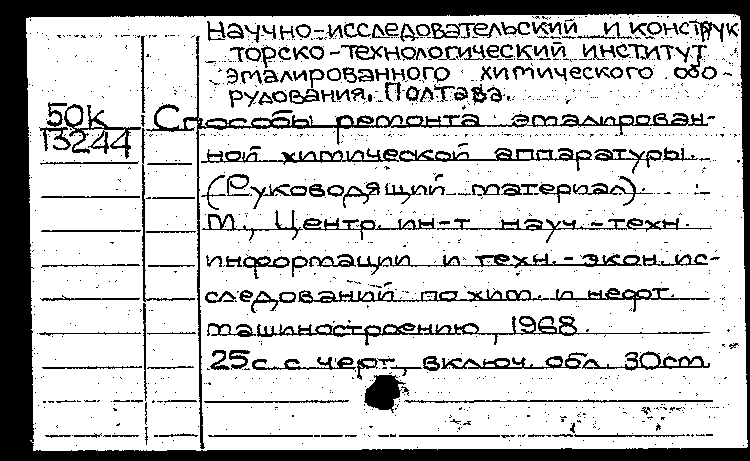 Научно-исследовательский и конструк
торско-технологический институт
эмалированного химического обо-
рудования. Полтава.
50к
13244
Способы ремонта эмалирован-
ной химической аппаратуры.
(Руководящий материал).
М., Центр. ин-т науч.-техн.
информации и техн.-экон. ис-
следований по хим. и нефт.
машиностроению, 1968.
25с. с черт., включ. обл. 30см.